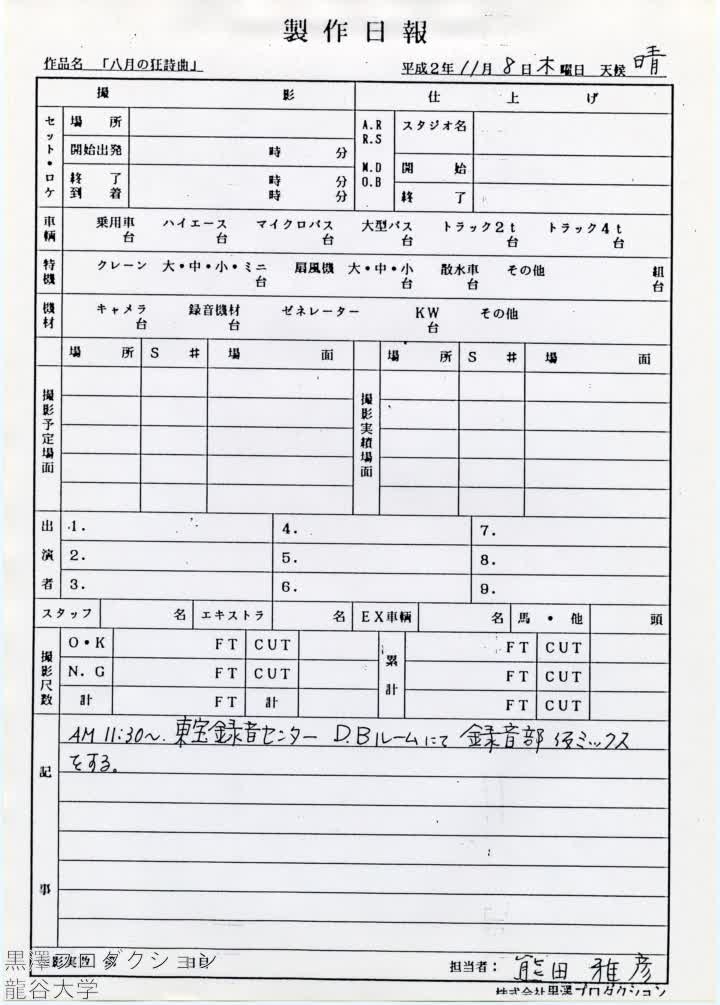 製作日報
作品名 「八月の狂詩曲」 平成2年 11月 8日 木曜日 天候 晴
撮 影 仕 上 げ
セット・ロケ 場 所 A.R R.S スタジオ名
開始出発 時 分 M.D O.B 開 始
終 了 時 分
到 着 時 分 終 了
車輌 乗用車 台 ハイエース 台 マイクロバス 台 大型バス 台 トラック2t 台 トラック4t 台
特機 クレーン 大・中・小・ミニ 台 扇風機 大・中・小 台 散水車 台 その他 組 台
機材 キャメラ 台 録音機材 台 ゼネレーター KW 台 その他
場 所 S # 場 面 場 所 S # 場 面
撮影予定場面 撮影実績場面
出演者 1. 4. 7.
2. 5. 8.
3. 6. 9.
スタッフ 名 エキストラ 名 EX車輌 名 馬・他 頭
撮影尺数 O・K FT CUT 累計 FT CUT
N.G FT CUT FT CUT
計 FT 計 FT CUT
記事
AM 11:30〜. 東宝録音センター D.Bルームにて 録音部 仮ミックス
をする。
担当者: 熊田雅彦
株式会社黒澤プロダクション
黒澤プロダクション
龍谷大学